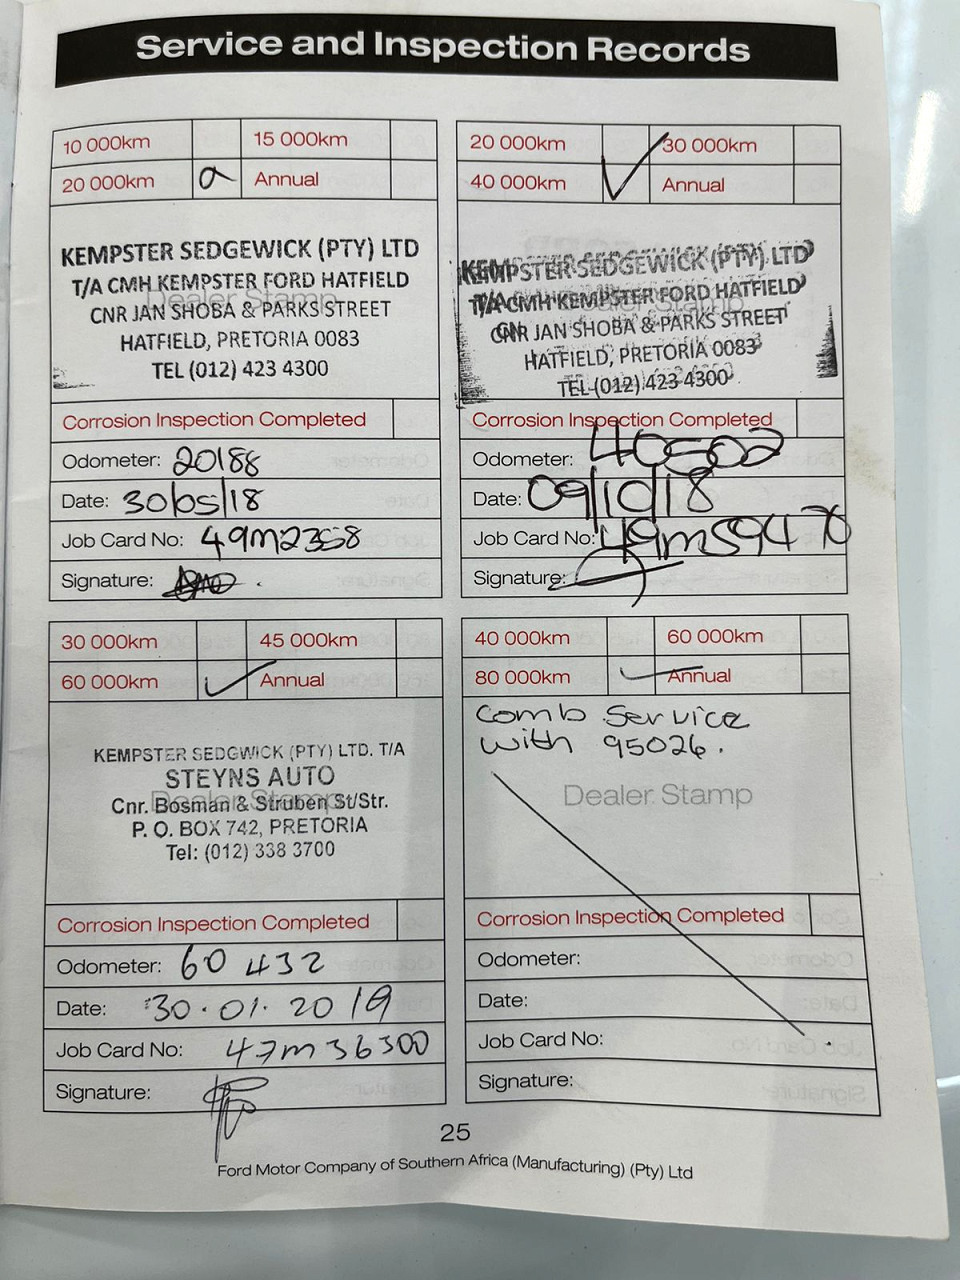 Service and Inspection Records
10 000km 15 000km
20 000km Annual
KEMPSTER SEDGEWICK (PTY) LTD
T/A CMH KEMPSTER FORD HATFIELD
Dealer Stamp
CNR JAN SHOBA & PARKS STREET
HATFIELD, PRETORIA 0083
TEL (012) 423 4300
Corrosion Inspection Completed
Odometer: 20188
Date: 30/05/18
Job Card No: 49m2358
Signature:
20 000km 30 000km
40 000km Annual
KEMPSTER SEDGEWICK (PTY) LTD
T/A CMH KEMPSTER FORD HATFIELD
CNR JAN SHOBA & PARKS STREET
HATFIELD, PRETORIA 0083
TEL (012) 423 4300
Corrosion Inspection Completed
Odometer: 40502
Date: 09/10/18
Job Card No:
Signature:
30 000km 45 000km
60 000km Annual
KEMPSTER SEDGWICK (PTY) LTD. T/A
STEYNS AUTO
Dealer Stamp
Cnr. Bosman & Struben St/Str.
P. O. BOX 742, PRETORIA
Tel: (012) 338 3700
Corrosion Inspection Completed
Odometer: 60 432
Date: 30.01.2019
Job Card No: 47m36300
Signature:
40 000km 60 000km
80 000km Annual
Comb Service
with 95026.
Dealer Stamp
Corrosion Inspection Completed
Odometer:
Date:
Job Card No:
Signature:
25
Ford Motor Company of Southern Africa (Manufacturing) (Pty) Ltd